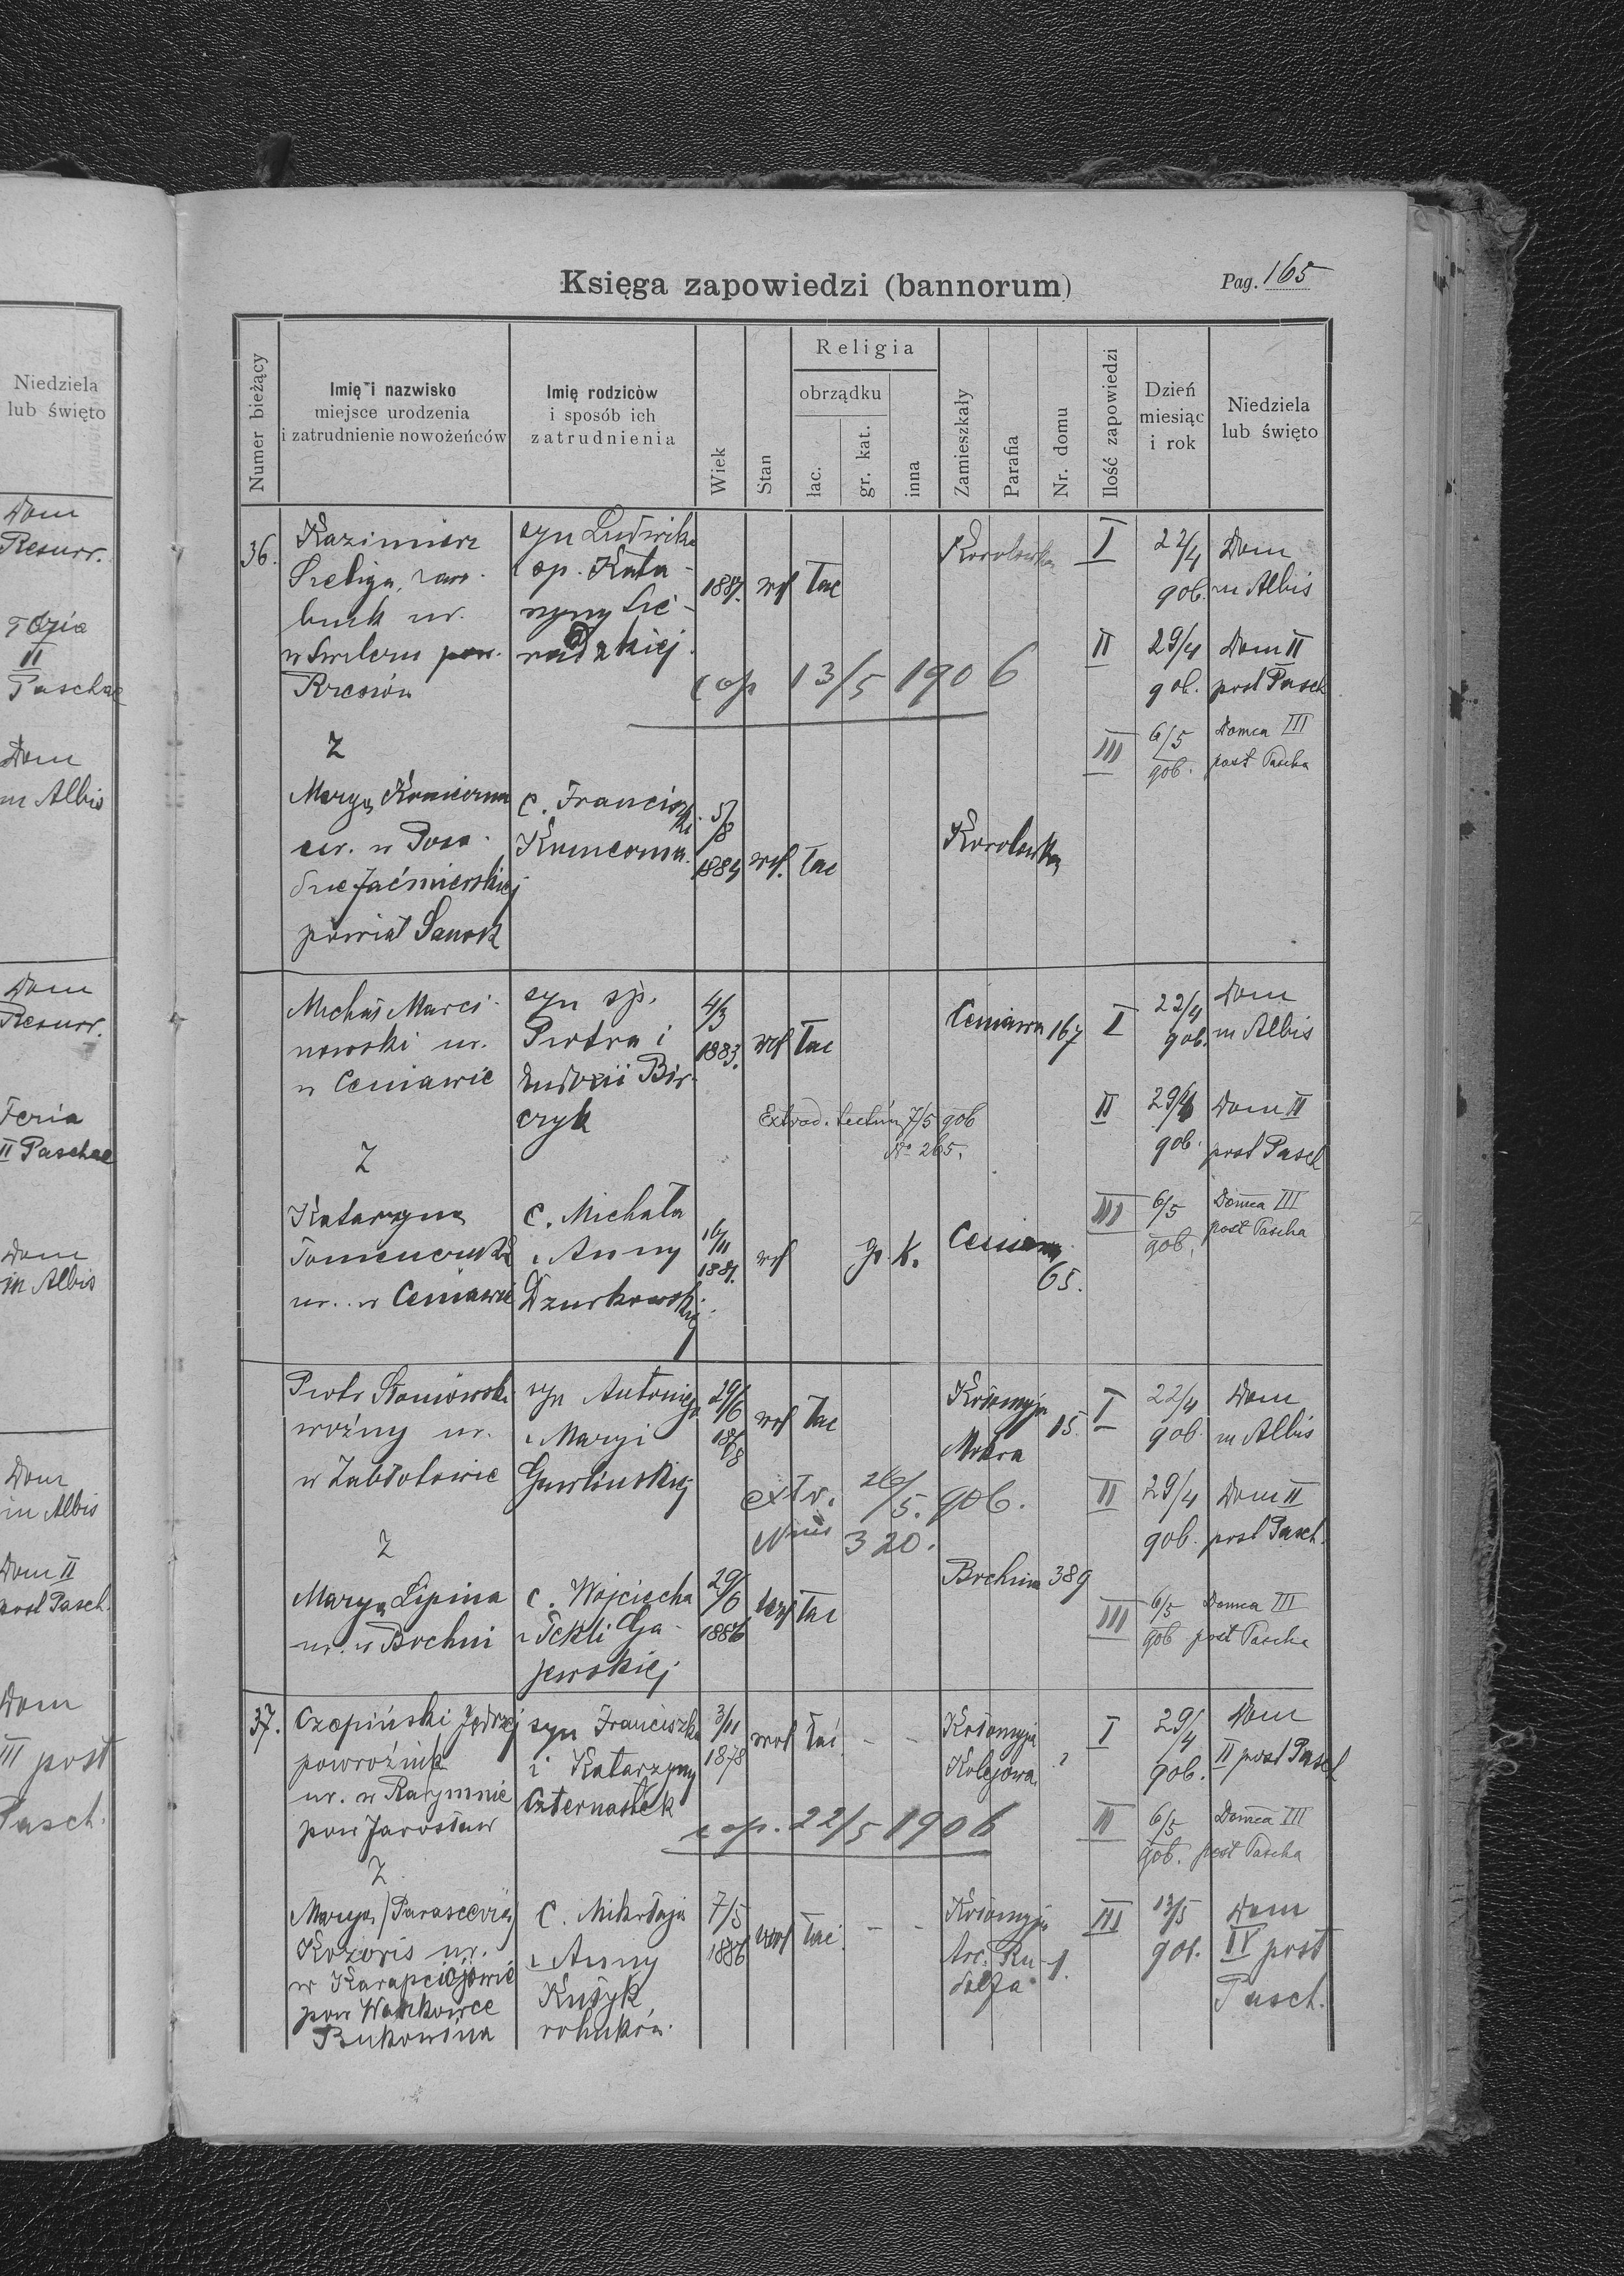 Księga zapowiedzi (bannorum)
Pag. 165
Numer bieżący
Imię i nazwisko
miejsce urodzenia
i zatrudnienie nowożeńców
Imię rodziców
i sposób ich
zatrudnienia
Wiek
Stan
Religia
obrządku
łac.
gr. kat.
inna
Zamieszkały
Parafia
Nr. domu
Ilość zapowiedzi
Dzień
miesiąc
i rok
Niedziela
lub święto
Niedziela
lub święto
Dom
Resurr.
II
Paschae
Dom
in Albis
Dom
Resurr.
Feria
II Paschae
Dom
in Albis
Dom
in Albis
Dom II
post Pasch.
Dom
III post
Pasch.
36.
Kazimierz
ur.
pow.
Rzeszów
syn Ludwika
i śp. Kata-
rzyny
wol łac
Korolówka
cop 13/5 1906
I 22/4 906. Dom in Albis
II 29/4 906. Dom II post Pasch
III 6/5 906. Domca III post Pascha
Z
Marya
ur. w Posa-
dzie Jaćmierskiej
powiat Sanok
c. Franciszka
5/8
1884
wol. łac
Korolówka
Michał Marci-
nowski ur.
w Ceniawie
syn śp.
Piotra i
Eudoxii Bir-
czyk
4/3
1883.
wol łac
Ceniawa 167
I 22/4 906. Dom in Albis
Extrad. 7/5 906
No 265.
II 29/4 906. Dom II post Pasch
Z
Katarzyna
ur. w Ceniawie
c. Michała
i Anny
Dzurkowskiej
16/11
wol
gr. k.
Ceniawa
65.
III 6/5 906. Domca III post Pascha
Piotr Słoniowski
woźny ur.
w Zabłotowie
syn Antoniego
i Maryi
Gawlinskiej
29/6
wol łac
Kołomyja
Mokra
15.
I 22/4 906. Dom in Albis
extr. 26/5. 906.
Nrus 320.
II 29/4 906. Dom II post Pasch.
Z
Marya Lipina
ur. w Bochni
c. Wojciecha
i Tekli Ga-
jewskiej
29/6
1886
wol łac
Bochnia 389
III 6/5 906 Domca III post Pascha
37.
Czepiński Jędrzej
powroźnik
ur. w Radymnie
pow Jarosław
syn Franciszka
i Katarzyny
Czternastek
3/11
1878
wol łac. - -
Kołomyja
Kolejowa
?
I 29/4 906. Dom II post Pasch
cop. 22/5 1906
II 6/5 906. Domca III post Pascha
Z
Marya (Parascevia)
Kozoris ur.
w Karapcziowie
pow Waszkowce
Bukowina
c. Mikołaja
i Anny
Kusyk
rolników.
7/5
1886
wol łac. - -
Kołomyja
Arc. Ru-
dolfa
1.
III 13/5 906. Dom IV post Pasch.